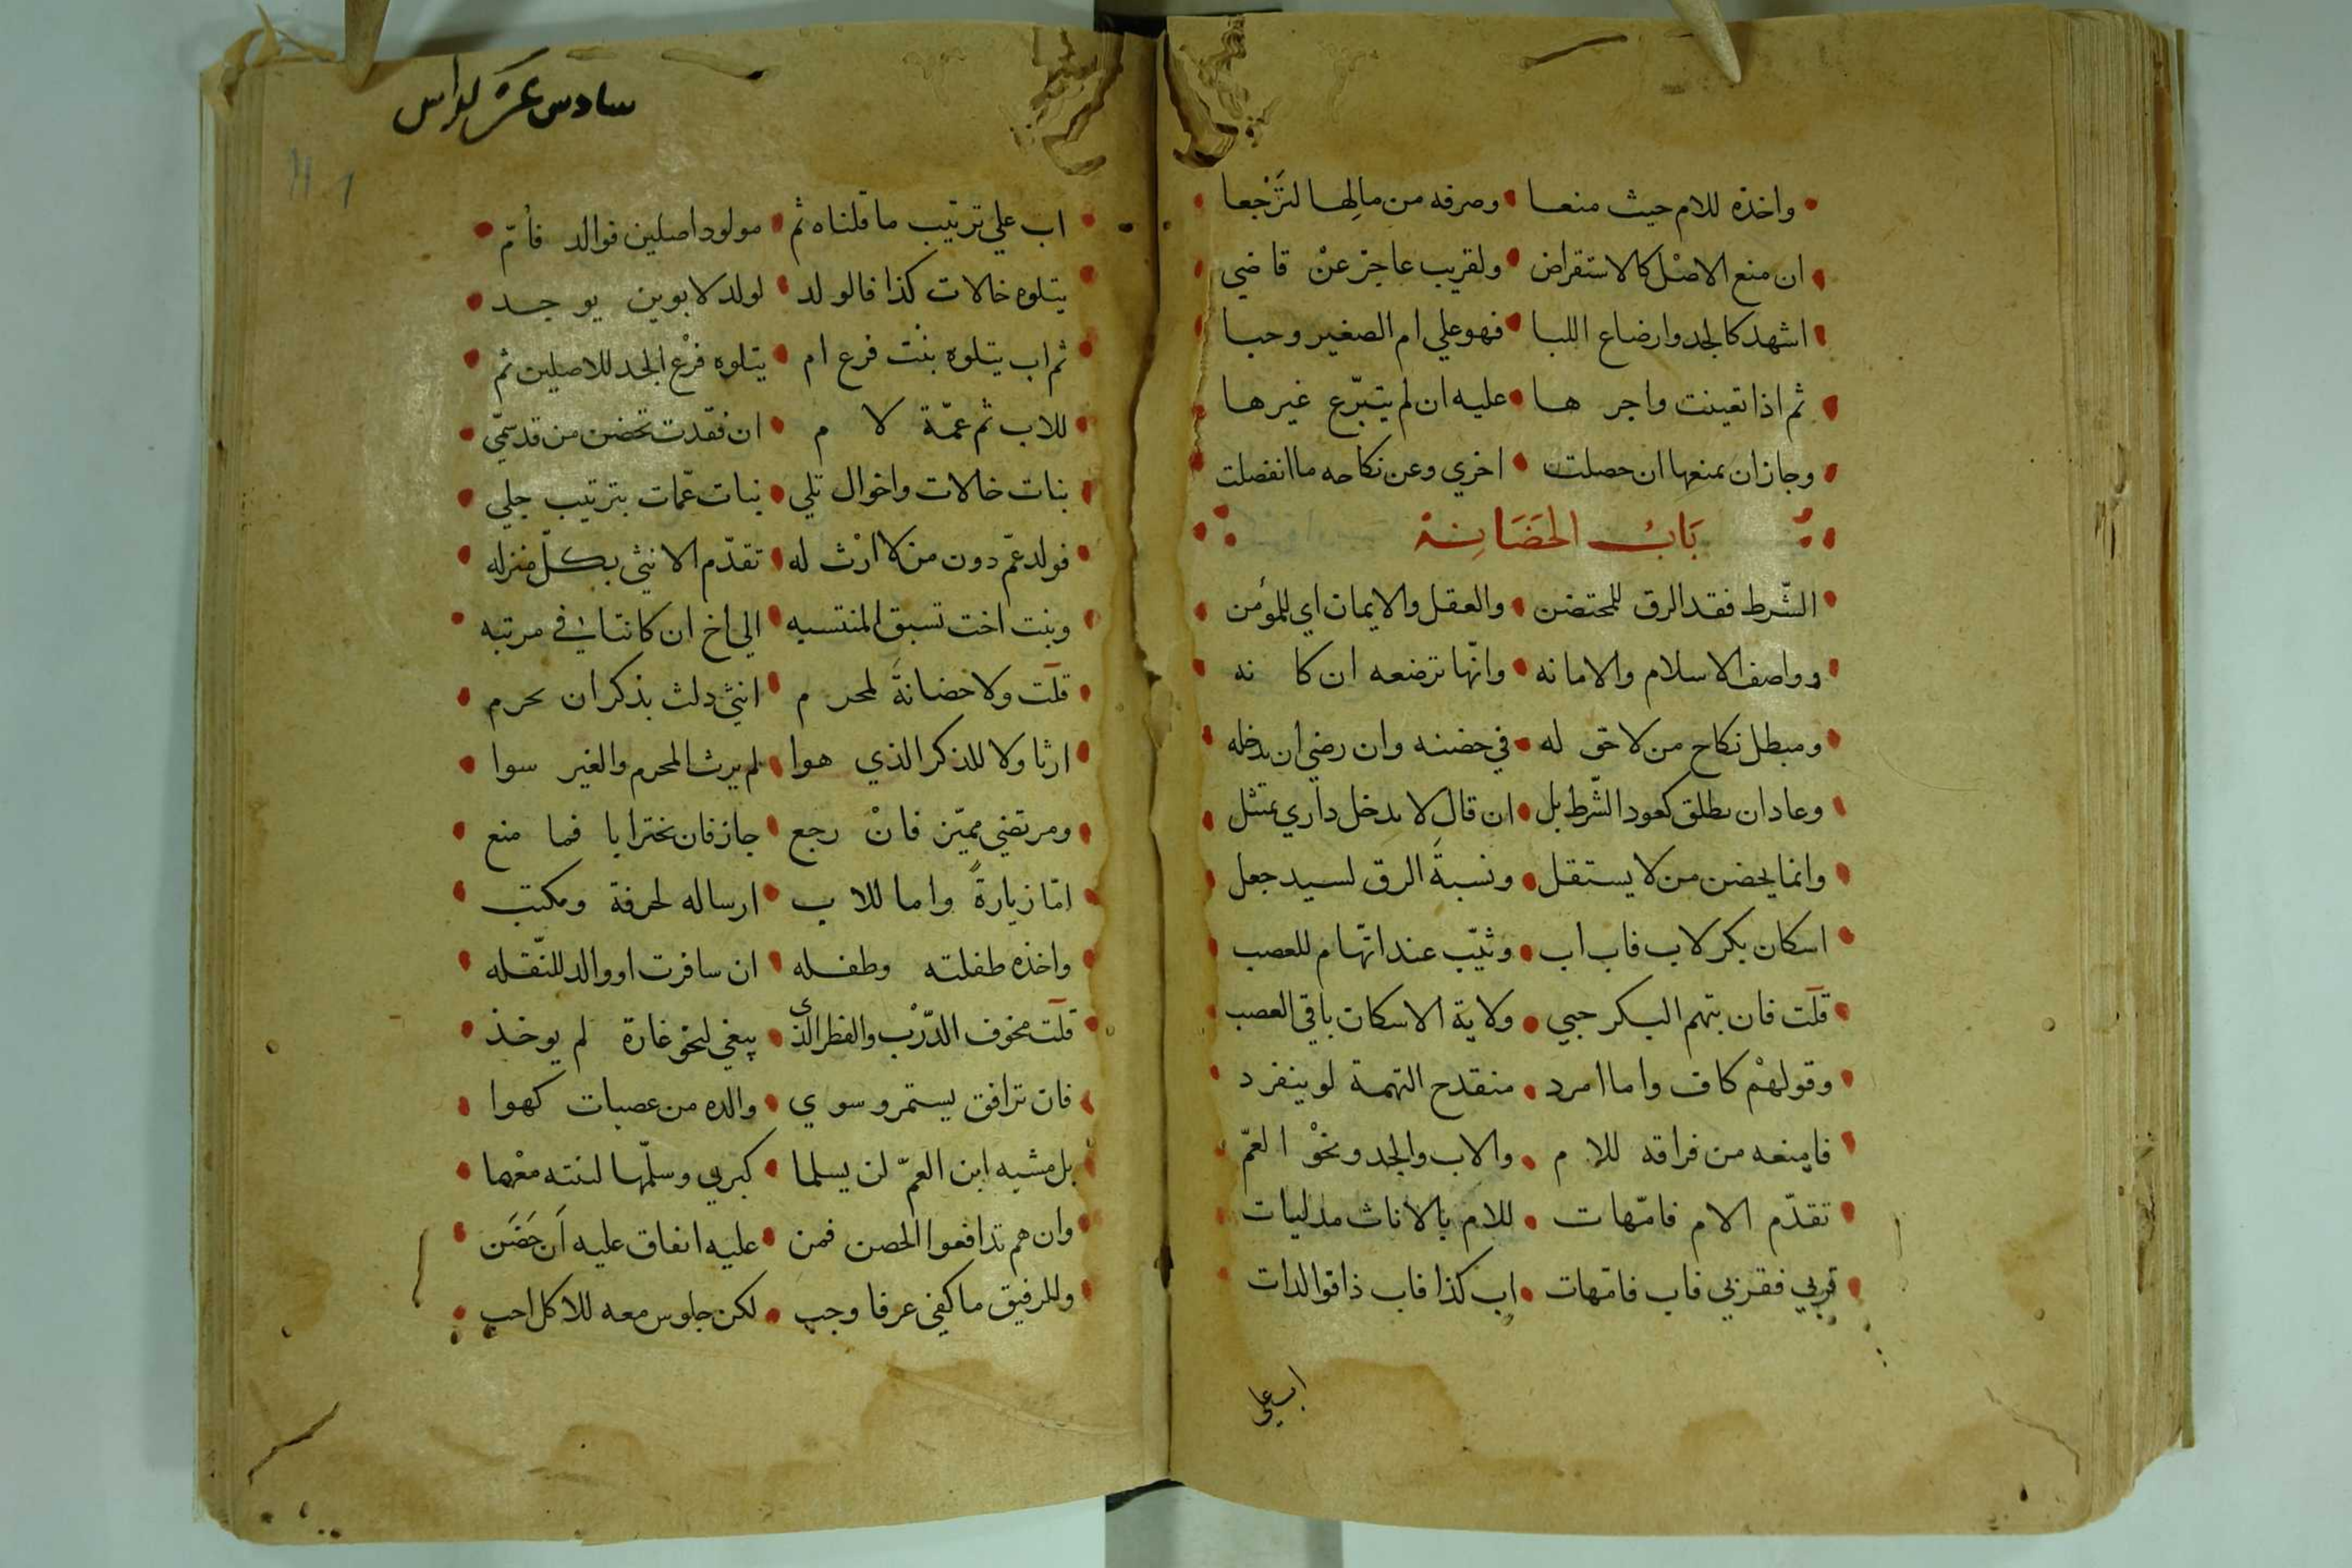 واخذه للام حيث منعا • وصرفه من مالها لترجعا
ان منع الاصل كالاستقراض • ولقريب عاجز عن قاضي
اشهد كالجد وارضاع اللبا • فهو علي ام الصغير وجبا
ثم اذا تعينت واجرها • عليه ان لم يتبرّع غيرها
وجاز ان يمنعها ان حصلت • اخري وعن نكاحه ما انفصلت
بَابُ الحَضَانِة
الشّرط فقد الرق للمحتضن • والعقل والايمان اي للمؤمن
وواصف الاسلام والامانه • وانّها ترضعه ان كانه
ومبطل نكاح من لا حق له • في حضنه وان رضي ان يدخله
وعاد ان يطلق كعود الشّرط بل • ان قال لا يدخل داري يمتثل
وانما يحضن من لا يستقل • ونسبةَ الرق لسيد جعل
اسكان بكر لاب فاب اب • وثيّب عند اتّهام للعصب
قلت فان تتهم البكر حبي • ولاية الاسكان باقي العصب
وقولهمْ كاف واما امرد • منقدح التهمة لو ينفرد
فامنعه من فراقه للام • والاب والجد ونحوْ العمّ
تقدّم الام فامّهات • للام بالاناث مدليات
قربي فقربي فاب فامّهات • اب كذا فاب ذا فوالدات
اب علي
سادس عشر كراس
اب علي ترتيب ما قلناه ثم • مولود اصلين فوالد فأمّ
يتلوه خالات كذا فالولد • لولد لابوين يوجد
ثم اب يتلوه بنت فرع ام • يتلوه فرْع الجد للاصلين ثم
للاب ثم عمّة لام • ان فقدت تحضن من قد سمّي
بنات خالات واخوال تلي • بنات عمّات بترتيب جلي
فولد عمّ دون من لا ارْث له • تقدّم الانثي بكلّ منزله
وبنت اخت تسبق المنتسبه • الي اخ ان كانتا في مرتبه
قلت ولا حضانةَ لمحرم • انثي دلت بذكر ان تحرم
ارثا ولا للذكر الذي هوا • لم يرث المحرم والغير سوا
ومرتضي مميّز فانْ رجع • جاز فان يختر ابا فما منع
امّا زيارةً واما للاب • ارساله لحرفة ومكتب
واخذه طفلته وطفله • ان سافرت او والد للنّقله
قلت مخوف الدّرْب والقطر الذي • يبغي لنحو غارة لم يوخذ
فان ترافق يستمر وسوي • والده من عصبات كهوا
بل مشبه ابن العمّ لن يسلما • كبري وسلّمها لبنته معْهما
وان هم تدافعوا الحضن فمن • عليه انفاق عليه اَن حَضَن
وللرفيق ما كفي عرفا وجب • لكن جلوس معه للاكل احب